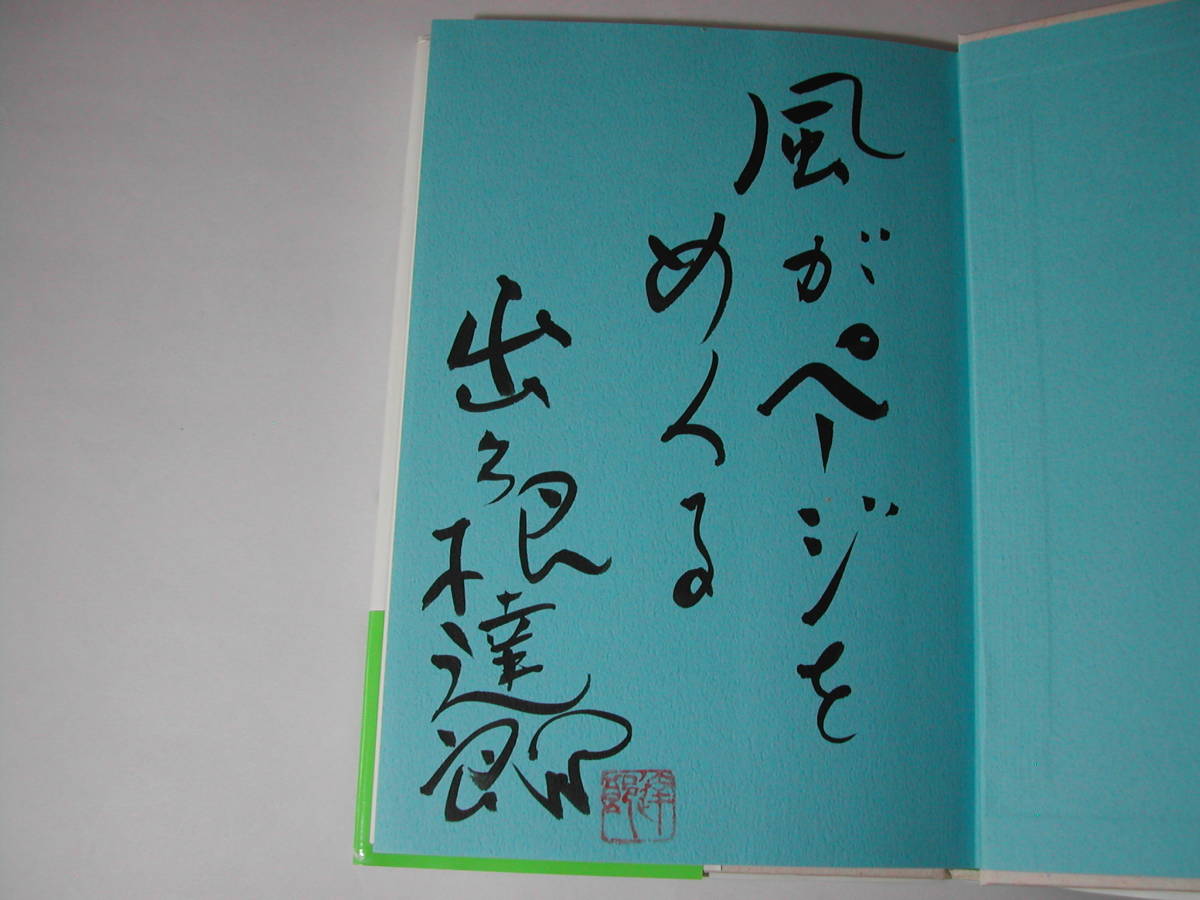 風がページを
めくる
出久根達郎
達郎